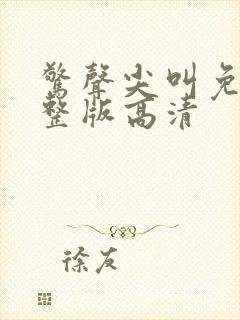 驚聲尖叫免
整版高清
徐友